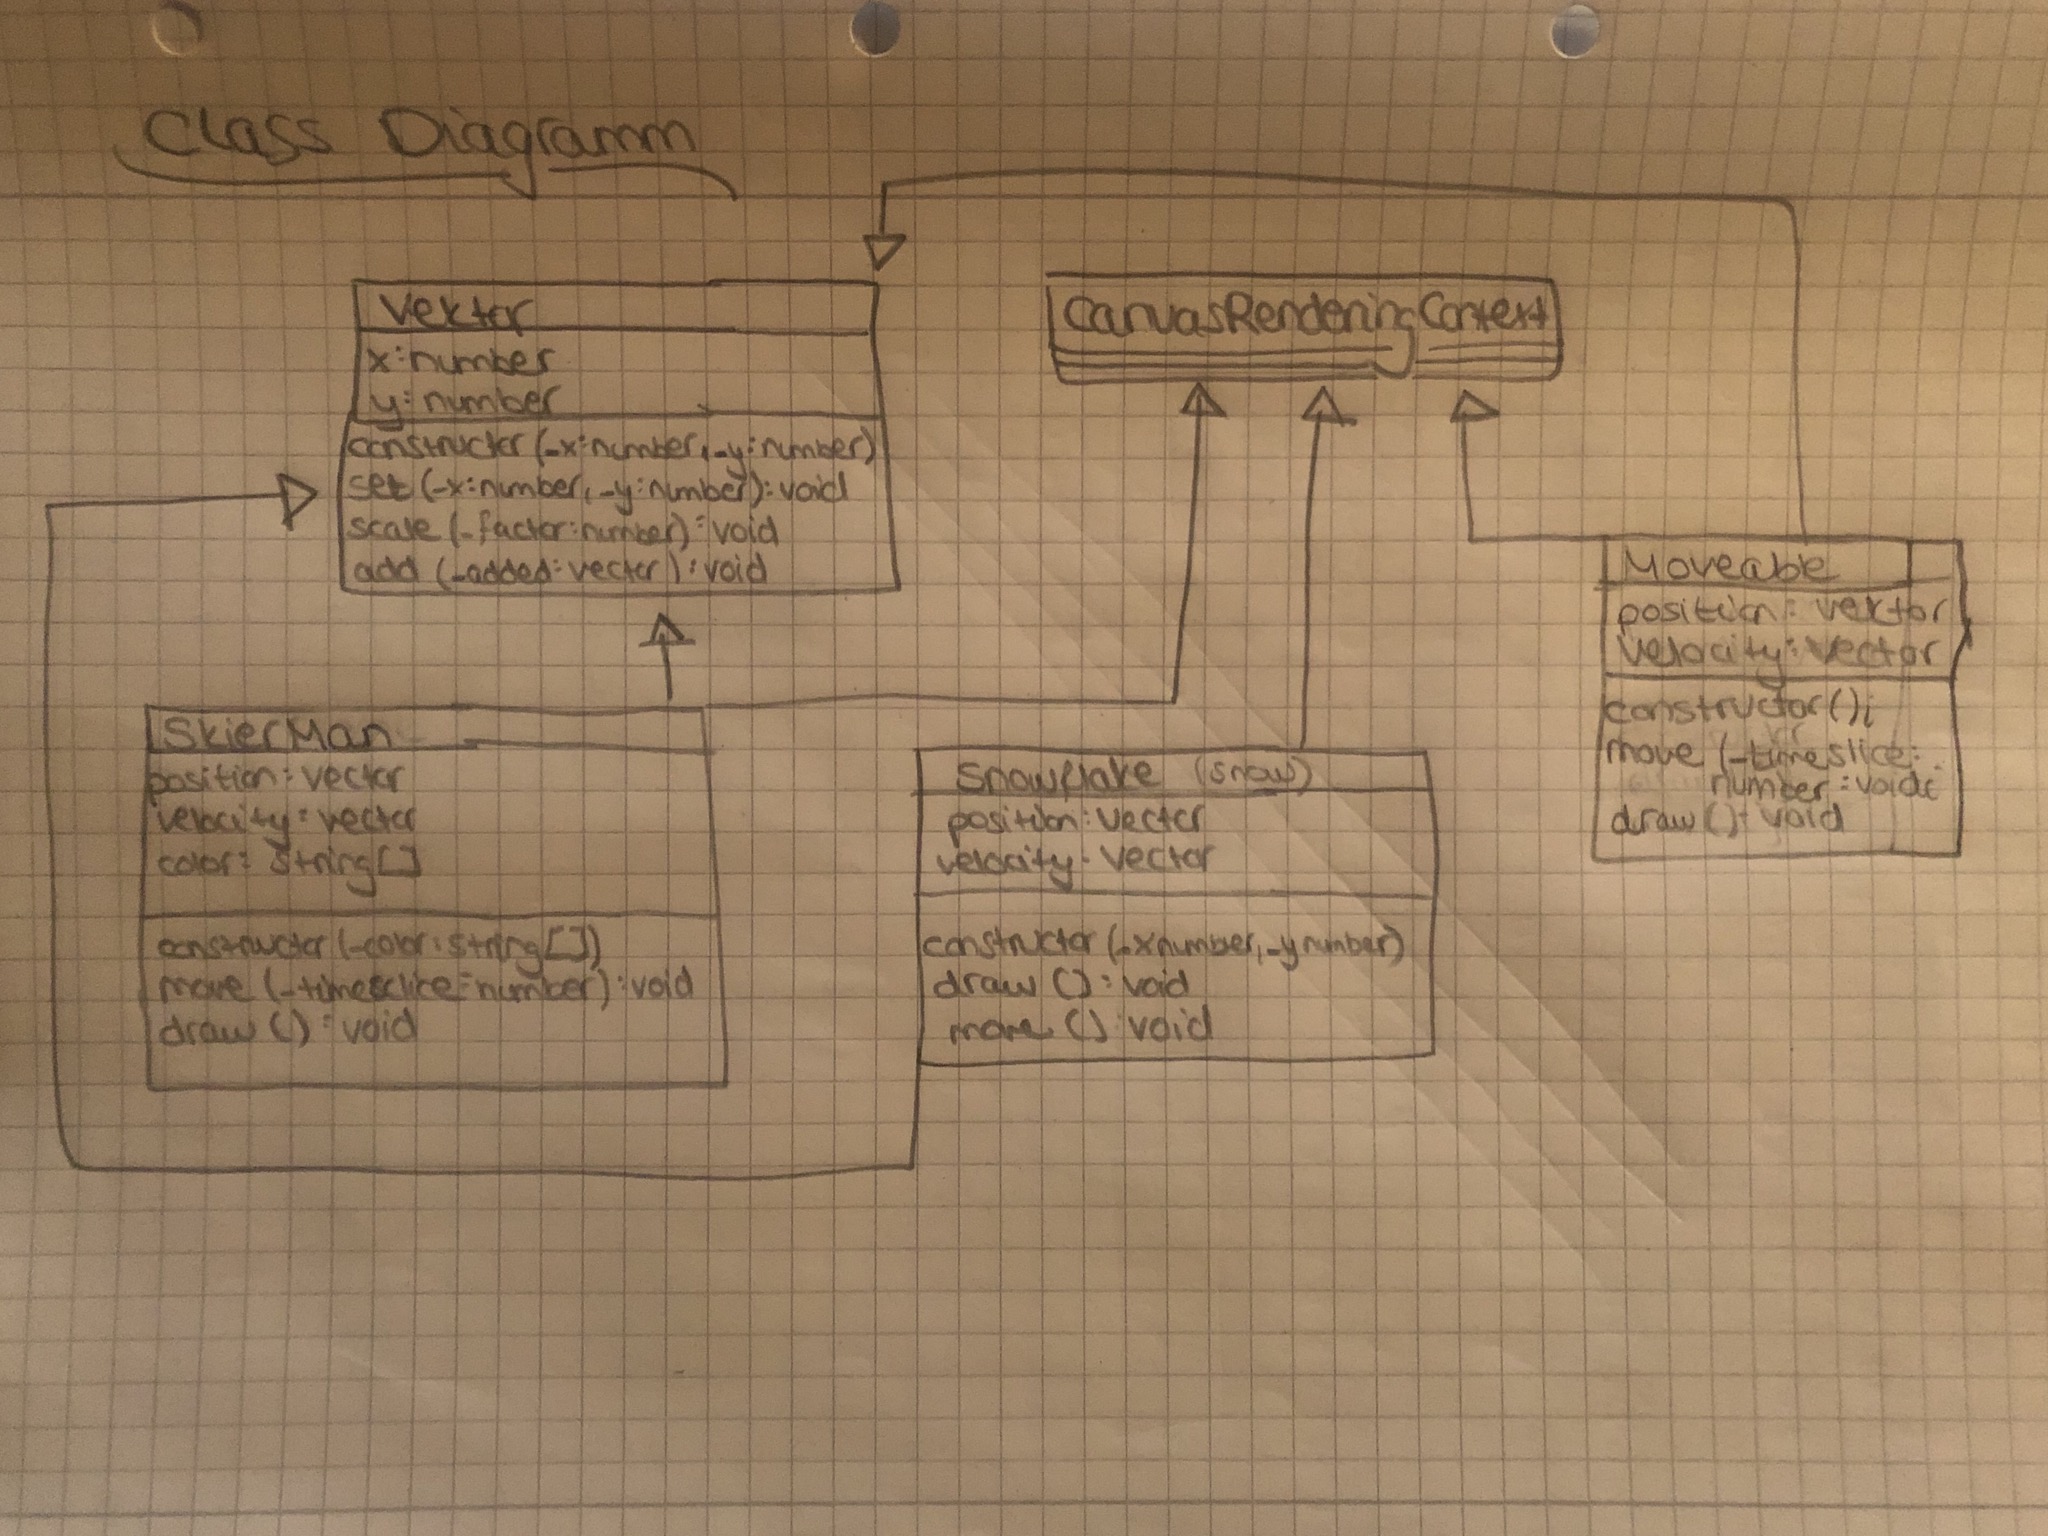 Class Diagramm
Vektor
x: number
y: number
constructor (_x: number, _y: number)
set (_x: number, _y: number): void
scale (_factor: number): void
add (_added: vector): void
CanvasRenderingContext
Moveable
position: vektor
velocity: vector
constructor();
move (_timeslice:
number: void
draw (): void
SkierMan
position: vector
velocity: vector
color: string[]
constructor (_color: string[])
move (_timesclice: number): void
draw (): void
Snowflake (snow)
position: vector
velocity: vector
constructor (_x number, _y number)
draw (): void
move (): void